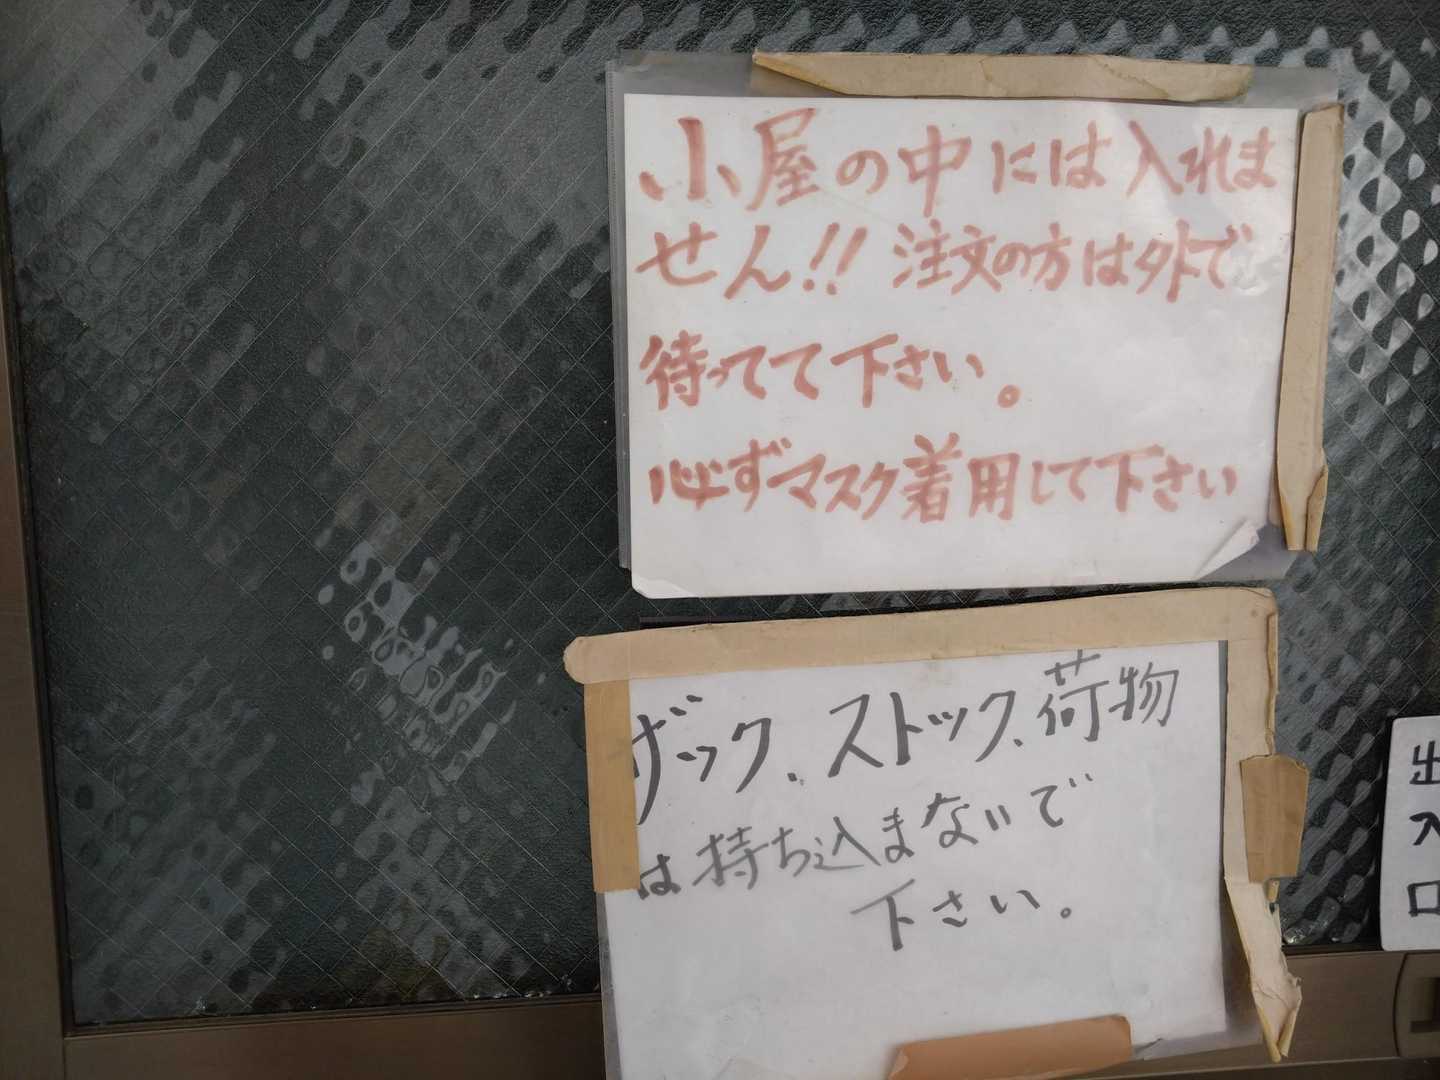 小屋の中には入れま
せん!! 注文の方は外で
待ってて下さい。
必ずマスク着用して下さい
ザック、ストック、荷物
は持ち込まないで
下さい。
出
入
口